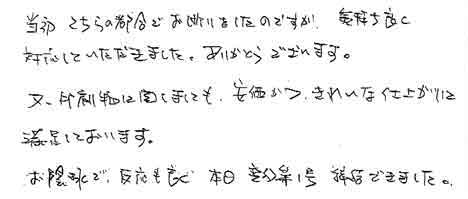 当初 こちらの都合でお断りをしたのですが、気持ち良く
対応していただきました。ありがとうございます。
又、印刷物に関しましても、安価かつ、きれいな仕上がりに
満足しております。
お陰様で、反応も良く 本日 第1号 できました。